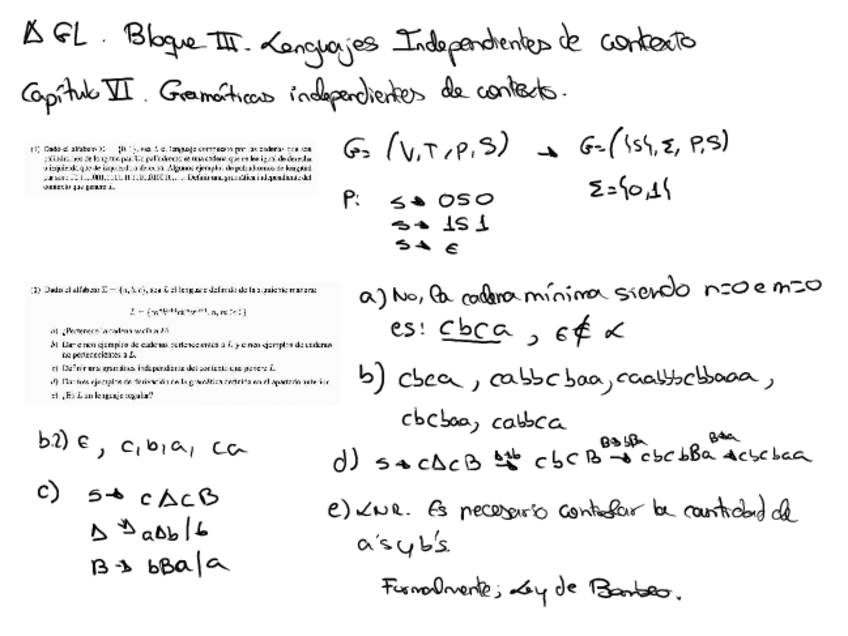 Δ GL. Bloque III. Lenguajes Independientes de contexto
Capítulo VI. Gramáticas independientes de contexto.
(1) Dado el alfabeto Σ = {0, 1}, sea L el lenguaje compuesto por las cadenas que son
palíndromos de longitud par. Un palíndromo es una cadena que se lee igual de derecha
a izquierda que de izquierda a derecha. Algunos ejemplos de palíndromos de longitud
Definir una gramática independiente del
contexto que genere L.
G= (V,T,P,S) → G=({S}, Σ, P,S)
Σ={0,1}
P: S→ 0S0
S→ 1S1
S→ ε
(2) Dado el alfabeto Σ = {a, b, c}, sea L el lenguaje definido de la siguiente manera:
a) ¿Pertenece la cadena vacía a L?
b) Dar cinco ejemplos de cadenas pertenecientes a L y cinco ejemplos de cadenas
no pertenecientes a L.
c) Definir una gramática independiente del contexto que genere L.
d) Dar tres ejemplos de derivación de la gramática definida en el apartado anterior.
e) ¿Es L un lenguaje regular?
a) No, la cadena mínima siendo n=0 e m=0
es: cbca, ε∉ L
b) cbca, cabbcbaa, caabbbcbbaaa,
cbcbaa, cabbca
b.2) ε, c, b, a, ca
c) S→ cAcB
A→ aAb/b
B→ bBa/a
d) S→ cAcB A→b→ cbcB B→bBa→ cbcbBa B→a→ cbcbaa
e) LNR. Es necesario contar la cantidad de
a's y b's.
Formalmente; Ley de Bombeo.